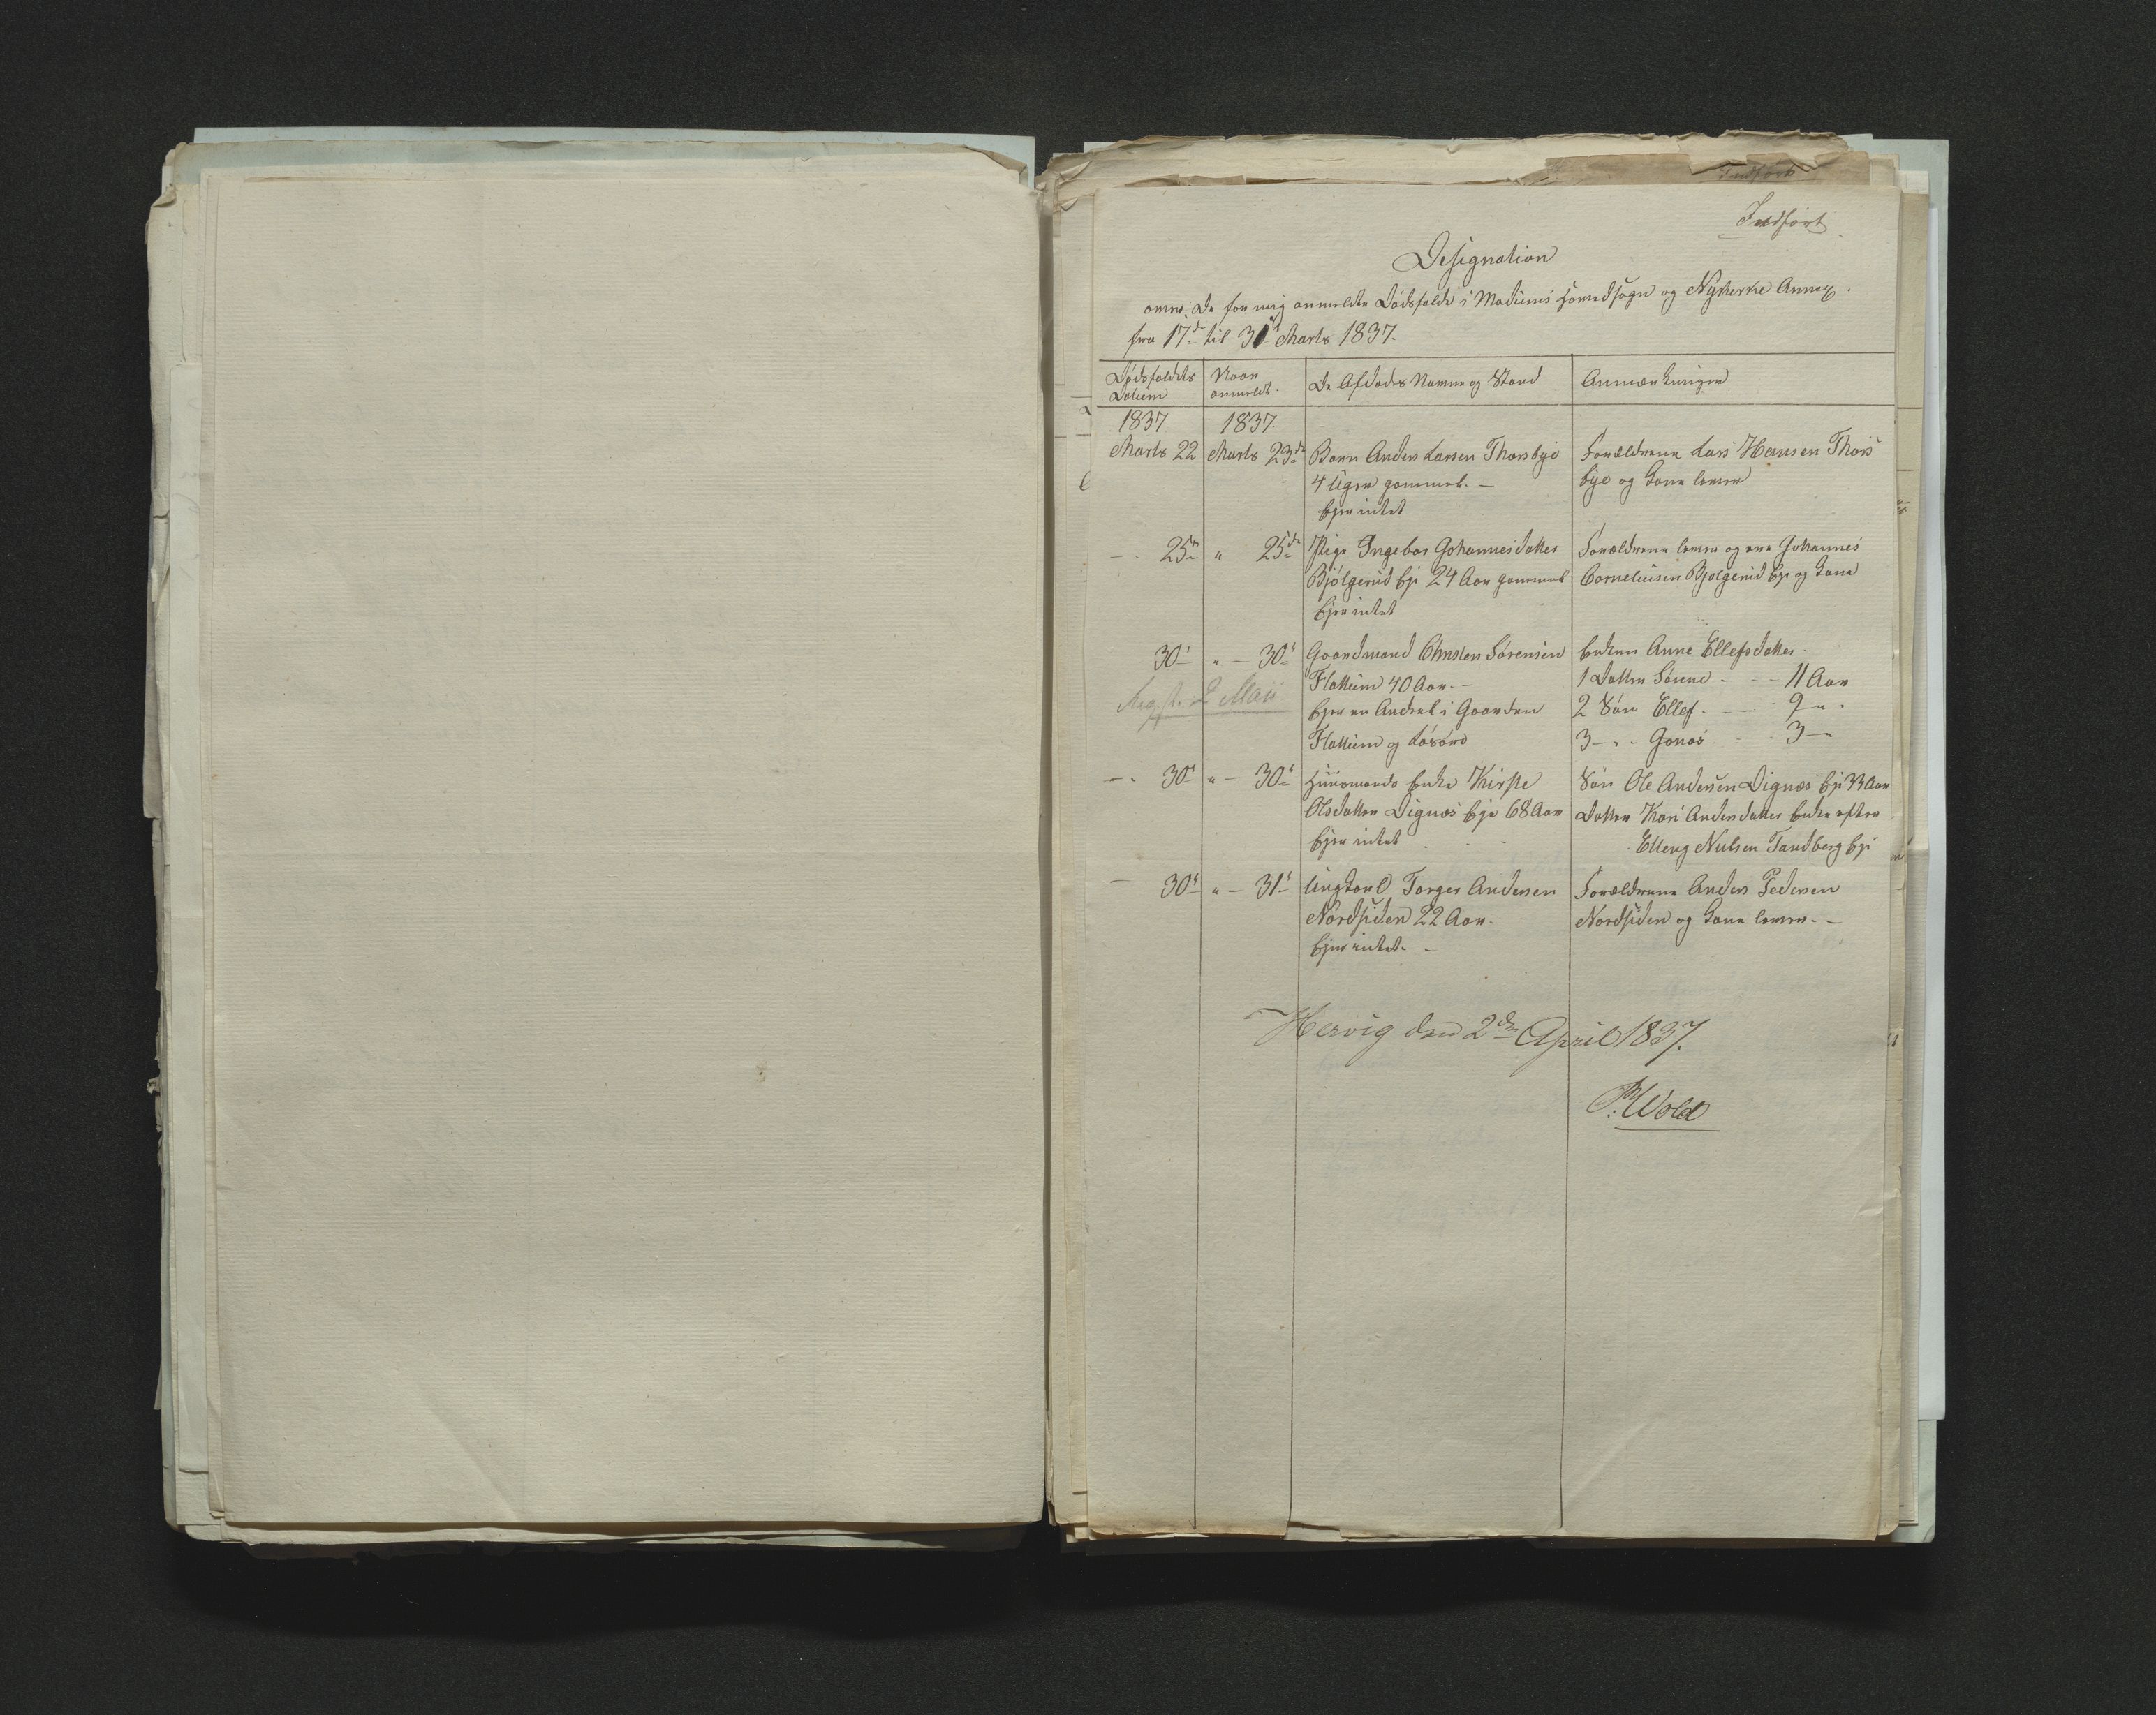 Indført
Indført
Designation
over de for mig anmeldte Dødsfald i Modums Hovedsogn og Nykerke Annex.
fra 17de til 31te Marts 1837.
Dødsfaldets Datum
Naar anmeldt.
De Afdødes Navne og Stand
Anmærkninger
1837
1837.
Marts 22
Marts 23de
Barn Anders Larsen Thorsbye
4 Uger gammel. —
Ejer intet
Forældrene Lars Hansen Thors
bye og Kone lever
— . 25de
" 25de
Pige Ingebor Johannesdatter
Bjølgerud Eje 24 Aar gammel
Ejer intet
Forældrene lever og ere Johannes
Corneliusen Bjølgerud Eje og Kone
30te
" — 30te
Gaardmand Christen Sørensen
Flattum 40 Aar. —
Ejer en Andeel i Gaarden
Flattum og Løsøre
Enken Anne Ellefsdatter —
1 Datter Sørine — — 11 Aar
2 Søn Ellef. — — 9 " .
3 — " - Jonas — 3 — "
Reg. f. 2 Maii
— . 30te
" — 30te
Huusmands Enke Kirstie
Olsdatter Dignæs Eje 68 Aar
Ejer intet
Søn Ole Andersen Dignæs Eje 33 Aar
Datter Kari Andersdatter Enke efter
Elling Nielsen Tandberg Eje
— 30te
" — 31te
Ungkarl Torger Andersen
Nordsiden 22 Aar.
Ejer intet. —
Forældrene Anders Pedersen
Nordsiden og Kone lever. —
Hervig den 2den April 1837.
Wold